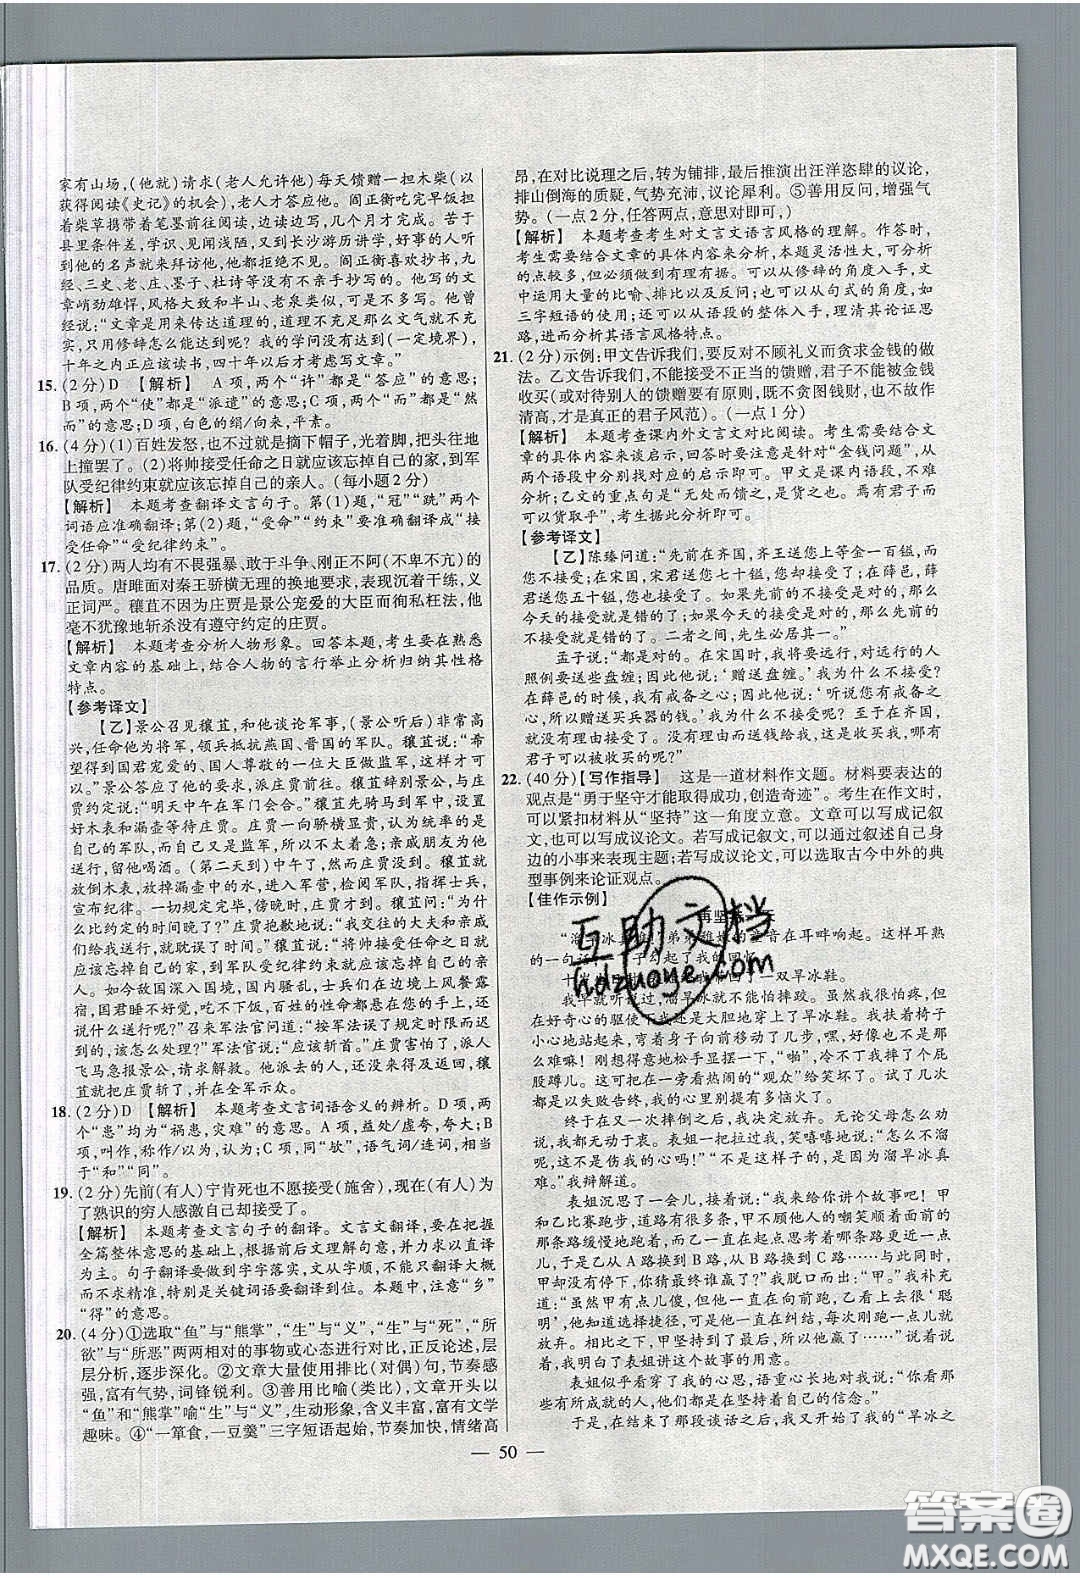 家有山场，(他就)请求(老人允许他)每天馈赠一担木柴(以
获得阅读《史记》的机会)，老人才答应他。阎正衡吃完早餐
担着柴草携带着笔墨前往阅读，边读边写，几个月才完成。苦于
县里条件差，学识、见闻浅陋，又到长沙游历讲学，好事的人听到
他的名声都来拜访他，但总拒绝不见。阎正衡喜欢抄书，九
经、三史、老、庄、墨子、杜诗等几乎没有不亲手抄写的。他的文
章峭劲雄悍，风格大致和半山、老泉类似，可是不了解他。他曾
经说：“文章是用来传达道理的，道理不充沛那么文气就不旺盛，
光靠修辞怎么能达到呢？我的学问没有达到(一定境界)，
十年之内正应该读书，四十年以后才考虑写文章。”
15. (2分)D 【解析】 A项，两个“许”都是“答应”的意思；
B项，两个“使”都是“派遣”的意思；C项，两个“而”都是“然
而”的意思；D项，白色的绢/向来，平素。
16. (4分)(1)百姓发怒，也不过就是摘下帽子，光着脚，把头往地
上撞罢了。(2)将帅接受任命之日就应该忘掉自己的家，到军
队受纪律约束就应该忘掉自己的亲人。(每小题2分)
【解析】 本题考查翻译文言句子。第(1)题，“冠”“跣”两个
词语应准确翻译；第(2)题，“受命”“约束”要准确翻译成“接
受任命”“受纪律约束”。
17. (2分)两人均有不畏强暴、敢于斗争、刚正不阿(不卑不亢)的
的品质。唐雎面对秦王骄横无理的换地要求，表现沉着干练，义
正词严。穰苴不因为庄贾是景公宠爱的大臣而徇私枉法，他
毫不犹豫地斩杀没有遵守约定的庄贾。
【解析】 本题考查分析人物形象。回答本题，考生要在熟悉
文章内容的基础上，结合人物的言行举止分析归纳其性格
特点。
【参考译文】
【乙】景公召见穰苴，和他谈论军事，(景公听后)非常高
兴，任命他为将军，领兵抵抗燕国、晋国的军队。穰苴说：“希
望得到国君宠爱的、国人尊敬的一位大臣做监军，这样才可
以。”景公答应了他的要求，派庄贾前往。穰苴辞别景公，与庄
贾约定说：“明天中午在军门会合。”穰苴先骑马到军中，设
好木表和漏壶等待庄贾。庄贾一向骄横显贵，认为统率的是
自己的军队，而自己又是监军，所以不着急；亲戚朋友为他送
行，留他喝酒。(第二天到)中午了，然而庄贾没到。穰苴就
放倒木表，放掉漏壶中的水，进入军营，检阅军队，指挥士兵，
宣布纪律。一切规定完毕，傍晚时，庄贾才到。穰苴问：“为什
么比约定的时间晚了？”庄贾抱歉地说：“我交往的大夫和亲戚
们给我送行，就耽误了时间。”穰苴说：“将帅接受任命之日就
应该忘掉自己的家，到军队受纪律约束就应该忘掉自己的亲
人。如今敌国深入国境，国内骚乱，士兵们在边境上风餐露
宿，国君睡不好觉，吃不下饭，百姓的性命都悬在你身上，还
说什么送行？”召来军法官问道：“按军法误了规定时间而迟
到的，该怎么处理？”军法官说：“应该斩首。”庄贾害怕了，派人
飞马急报景公，请求解救。他派去的人还没来得及返回，穰
苴就把庄贾斩了，并在全军示众。
18. (2分)D 【解析】 本题考查文言词语含义的辨析。D项，两
个“患”均为“祸患，灾难”的意思。A项，益处/虚夸，夸大；B
项，叫作，称作/以为，认为；C项，同“欤”，语气词/连词，相当
于“和”“同”。
19. (2分)先前(有人)宁肯死也不愿接受(施舍)，现在(有人)为
了熟识的穷人感激自己却接受了。
【解析】 本题考查文言句子的翻译。文言文翻译，要在把握
全篇整体意思的基础上，根据前后文理解句意，并以直译
为主。句子翻译要做到字字落实，文从字顺，不能只翻译大概
而不求精准，特别是关键词语要翻译到位。本题中，注意“乡”
“得”的意思。
20. (4分)①选取“鱼”与“熊掌”，“生”与“义”，“生”与“死”，“所
欲”与“所恶”两两相对的事物或心态进行对比，正反论述，层
层分析，逐步深化。②文章大量使用排比(对偶)句，节奏感
强，富有气势，词锋锐利。③善用比喻(类比)，文章开头以
“鱼”和“熊掌”喻“生”与“义”，生动形象，含义丰富，富有文学
趣味。④“一箪食，一豆羹”三字短语起始，节奏加快，情绪高
昂，在对比说理之后，转为铺排，最后推演出汪洋恣肆的议论，
排山倒海的质疑，气势充沛，议论犀利。⑤善用反问，增强气
势。(一点2分，任答两点，意思对即可，)
【解析】 本题考查考生对文言文语言风格的理解。作答时，
考生需要结合文章的具体内容来分析，本题灵活性大，可分析
的点较多，但必须做到有理有据。可以从修辞的角度入手，文
中运用大量的比喻、排比及反问；也可以从句式的角度，如
三字短语的使用；还可以从语段的整体入手，理清其论证思
路，进而分析其语言风格特点。
21. (2分)示例：甲文告诉我们，要反对不顾礼义而贪求金钱的做
法。乙文告诉我们，不能接受不正当的馈赠，君子不能被金钱
收买(或对待别人的馈赠要有原则，既不贪图钱财，也不故作
清高，才是真正的君子风范)。(一点1分)
【解析】 本题考查课内外文言文对比阅读。考生需要结合文
章的具体内容来谈启示，回答时要注意是针对“金钱问题”，从
两个语段中分别找对应的启示即可。甲文是课内语段，不再
赘述；乙文的重点句是“无处而馈之，是货之也。焉有君子而
可以货取乎”，据此分析即可。
【参考译文】
【乙】陈臻问道：“先前在齐国，齐王送您上等金一百镒，
您不接受；在宋国，宋君送您七十镒，您接受了；在薛邑，薛
君送您五十镒，您也接受了。如果先前的不接受是对的，那么
今天的接受就是错的；如果今天的接受是对的，那么先前的
不接受就是错的。二者之间，先生必居其一。”
孟子说：“都是对的。在宋国时，我将要远行，对远行的人
照例要送些盘缠；因此他说：‘赠送盘缠。’我为什么不接受？
在薛邑的时候，我有戒备之心；因此他说：‘听说您有戒备之
心，所以赠送买兵器的钱。’我为什么不接受？至于在齐国，
就没有理由接受了。没有理由而送钱给我，这是收买我，哪有
君子可以被收买的呢？”
22. (40分)【写作指导】 这是一道材料作文题。材料要表达的
观点是“勇于坚守才能取得成功，创造奇迹”。考生在作文时，可
以紧扣材料从“坚持”这一角度立意。文章可以写成记叙
文，也可以写成议论文。若写成记叙文，可以通过叙述自己身
边的小事来表现主题；若写成议论文，可以选取古今中外的典
型事例来论证观点。
【佳作示例】
再坚
“溜旱冰真难！”弟弟稚嫩的声音在耳畔响起。这样耳熟
的一句话，子勾起了我的回忆。
一双旱冰鞋。
我早就听说过，溜旱冰最不能怕摔跤。虽然我很怕疼，但
在好奇心的驱使下我还是大胆地穿上了旱冰鞋。我扶着椅子
小心地站起来，弯着身子向前移动了几步，嘿，好像也不是那
么难嘛！刚想得意地松手显摆一下，“啪”，冷不丁我摔了个屁
股蹲儿。这把在一旁看热闹的“观众”给笑坏了。试了几次
都是以失败告终，我的心里别提有多恼火了！
终于在又一次摔倒之后，我决定放弃。无论父母怎么劝
说，我都无动于衷。表姐一把拉过我，笑嘻嘻地说：“怎么不溜
呢，这不是还没学会吗！”“不是这样子的，是溜旱冰真
难！”我辩解道。
表姐沉思了一会儿，说：“我来给你讲个故事吧！有一次甲
和乙比赛跑步，道路有很多条，甲不顾人们的嘲笑顺着前面的
那条路缓慢地跑着，而乙一直在起点思考着哪条路近，
一会儿从A路换到B路，从B路换到C路……与此同时，
甲却没有停下，你猜最终谁赢了？”我脱口而出：“甲。”我补充
道：“虽然甲有点儿傻，但他一直在向前跑，乙虽然很‘聪
明’，但他不知道选择捷径，可是他一直换来换去，每次刚跑一点儿就
放弃了。相比之下，甲坚持到了最后，所以甲赢了。”说着说着
我似乎明白了表姐讲这个故事的用意。
表姐似乎看穿了我的心思，语重心长地对我说：“你看那
些成功的人，他们都是在坚持着自己的信念。”
于是，在结束了那段谈话之后，我又开始了我的“旱冰之
— 50 —
互助文档
hdzuoye.com
答案圈
MXQE.COM